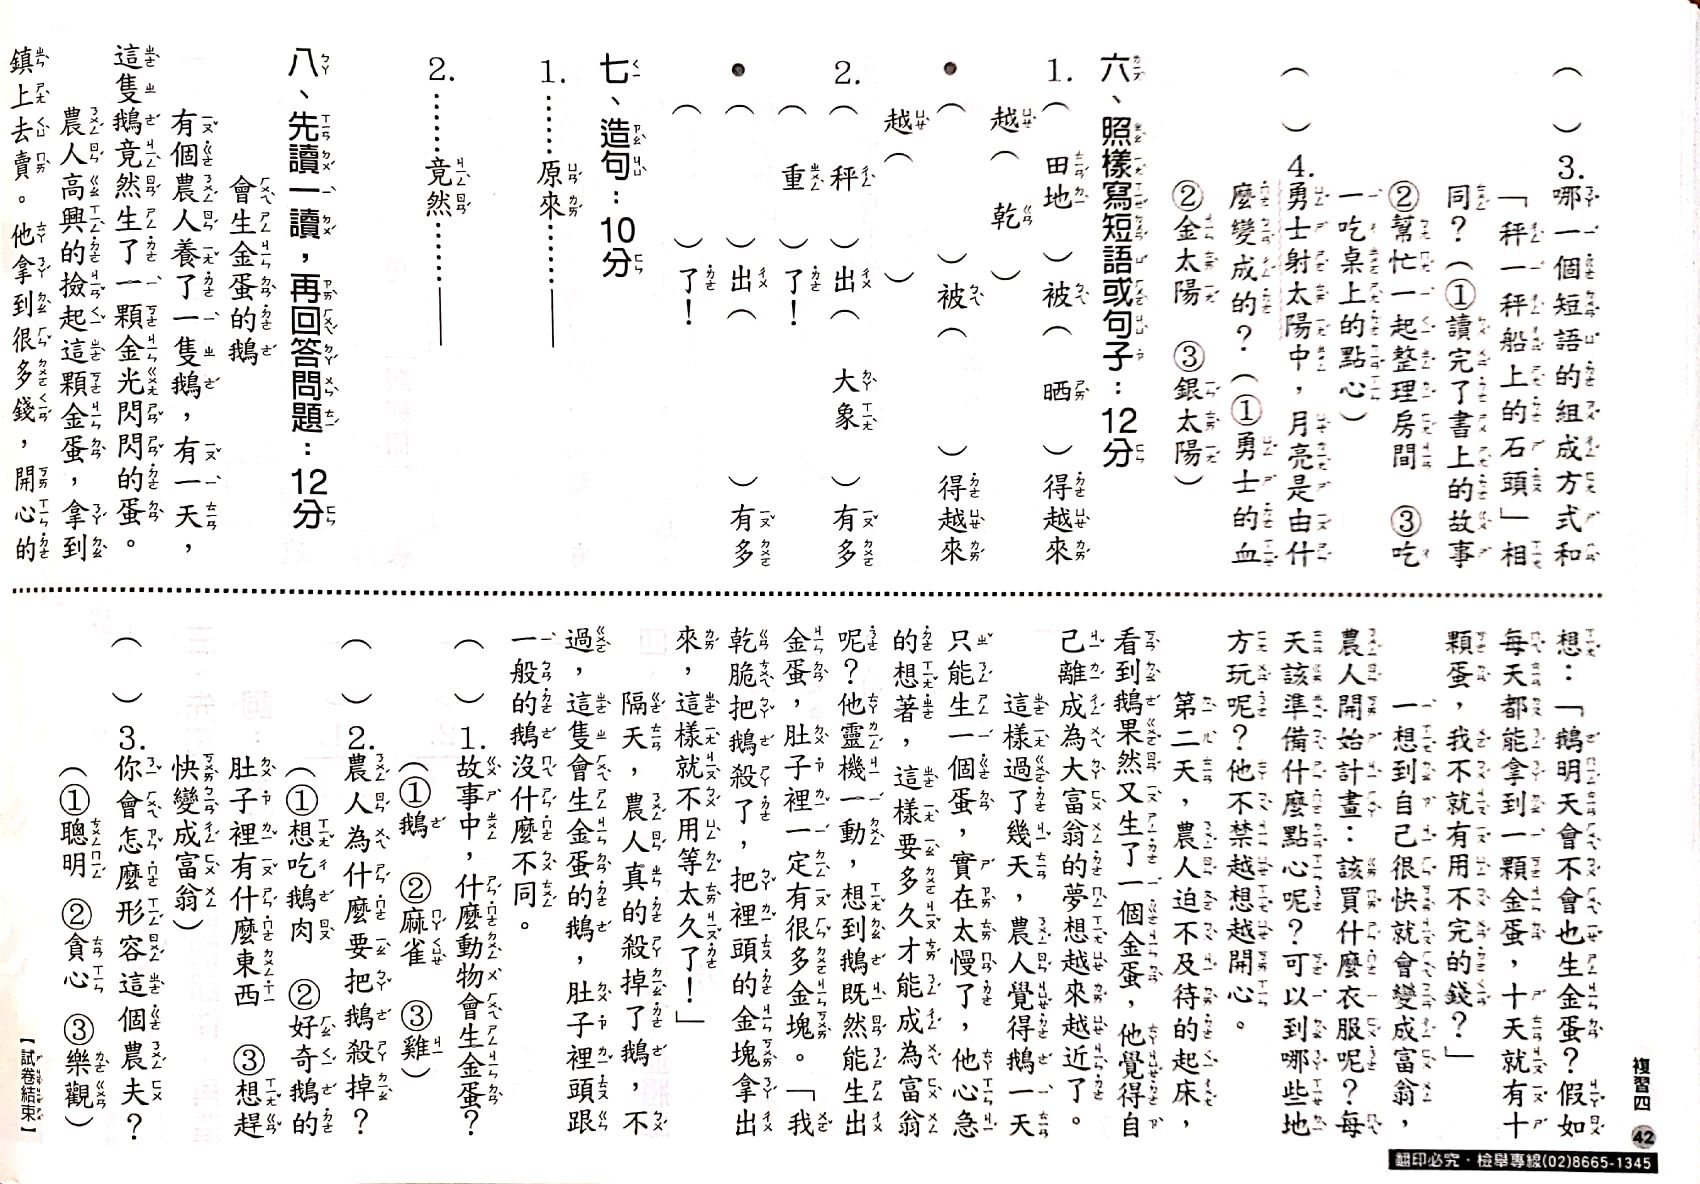 ( )3. 哪一個短語的組成方式和
「秤一秤船上的石頭」相
同?(①讀完了書上的故事
②幫忙一起整理房間 ③吃
一吃桌上的點心)
( )4. 勇士射太陽中,月亮是由什
麼變成的?(①勇士的血
②金太陽 ③銀太陽)
六、照樣寫短語或句子:12分
1. ( 田地 )被( 晒 )得越來
越( 乾 )
● ( )被( )得越來
越( )
2. ( 秤 )出( 大象 )有多
( 重 )了!
● ( )出( )有多
( )了!
七、造句:10分
1. ……原來……
2. ……竟然……
八、先讀一讀,再回答問題:12分
會生金蛋的鵝
有個農人養了一隻鵝,有一天,
這隻鵝竟然生了一顆金光閃閃的蛋。
農人高興的撿起這顆金蛋,拿到
鎮上去賣。他拿到很多錢,開心的
想:「鵝明天會不會也生金蛋?假如
每天都能拿到一顆金蛋,十天就有十
顆蛋,我不就有用不完的錢?」
一想到自己很快就會變成富翁,
農人開始計畫:該買什麼衣服呢?每
天該準備什麼點心呢?可以到哪些地
方玩呢?他不禁越想越開心。
第二天,農人迫不及待的起床,
看到鵝果然又生了一個金蛋,他覺得自
己離成為大富翁的夢想越來越近了。
這樣過了幾天,農人覺得鵝一天
只能生一個蛋,實在太慢了,他心急
的想著,這樣要多久才能成為富翁
呢?他靈機一動,想到鵝既然能生出
金蛋,肚子裡一定有很多金塊。「我
乾脆把鵝殺了,把裡頭的金塊拿出
來,這樣就不用等太久了!」
隔天,農人真的殺掉了鵝,不
過,這隻會生金蛋的鵝,肚子裡頭跟
一般的鵝沒什麼不同。
( )1. 故事中,什麼動物會生金蛋?
(①鵝 ②麻雀 ③雞)
( )2. 農人為什麼要把鵝殺掉?
(①想吃鵝肉 ②好奇鵝的
肚子裡有什麼東西 ③想趕
快變成富翁)
( )3. 你會怎麼形容這個農夫?
(①聰明 ②貪心 ③樂觀)
【試卷結束】
複習四 42
翻印必究・檢舉專線(02)8665-1345